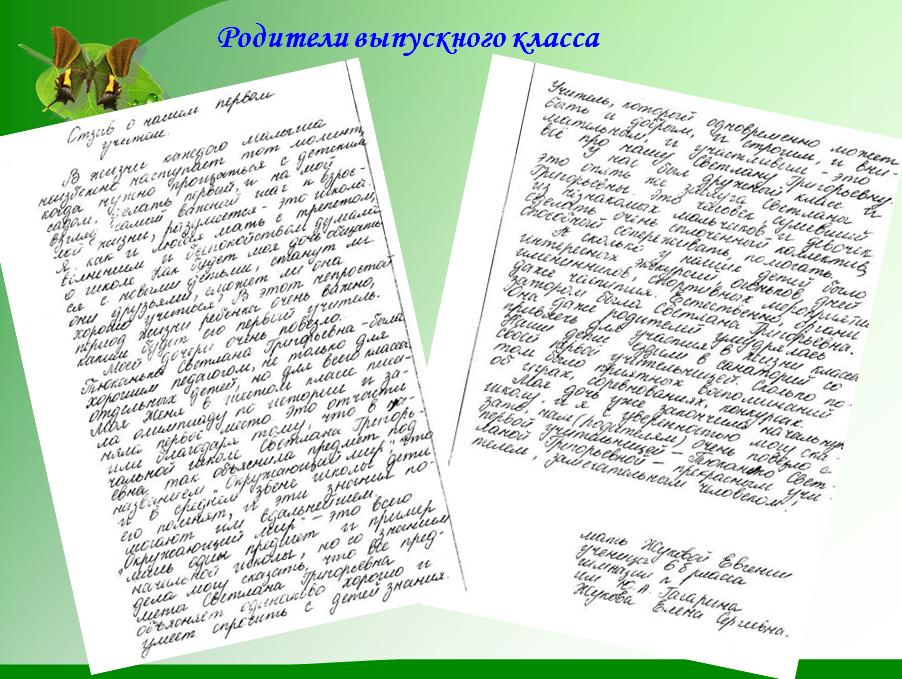 Родители выпускного класса
Отзыв о нашем первом
учителе.
В жизни каждого малыша
неизбежно наступает тот момент,
когда нужно прощаться с детским
садом, делать первый, и на мой
взгляд самый важный шаг к взрос-
лой жизни, разумеется - это школа.
Я, как и любая мать с трепетом,
волнением и беспокойством думала
о школе. Как будет моя дочь общать
ся с новыми детьми, станут ли
они друзьями, сможет ли она
хорошо учиться? В этот непростой
период жизни ребёнка очень важно,
каким будет его первый учитель.
Моей дочери очень повезло.
Тюкинько Светлана Григорьевна - была
хорошим педагогом, не только для
отдельных детей, но для всего класса.
Моя Женя в шестом классе писа-
ла олимпиаду по истории и за-
няла первое место. Это отчасти
или благодаря тому, что в на-
чальной школе Светлана Григорь-
евна так объяснила предмет под
названием "Окружающий мир", что
и в среднем звене школы дети
его помнят, и эти знания по-
могают им в дальнейшем.
"Окружающий мир" - это всего
лишь один предмет и пример
начальной школы, но со знанием
дела могу сказать, что все пред-
мета Светлана Григорьевна
объясняет одинаково хорошо и
умеет спросить с детей знания.
Учитель, который одновременно может
быть и добрым, и строгим, и вни-
мательным, и участливым - это
всё про нашу Светлану Григорьевну.
У нас был дружный класс и
это опять же заслуга Светланы
Григорьевны. Это человек, сумевший
из незнакомых мальчиков и девочек
сделать очень сплоченный коллектив,
способный сопереживать, помогать.
А сколько у наших детей было
интересных экскурсий, огоньков, дней
именинников, спортивных мероприятий
даже чаепития. Естественно, органи
затором была Светлана Григорьевна.
Она даже родителей умудрялась
привлечь для участия в жизни класса.
Наши дети ездили в санаторий со
своей первой учительницей. Сколько по-
том было приятных воспоминаний
об играх, соревнованиях, конкурсах.
Моя дочь уже закончила начальную
школу. И я с уверенностью могу ска-
зать, нам (родителям) очень повезло с
первой учительницей - Свет-
ланой Григорьевной - прекрасным учи-
телем, замечательным человеком!
мать Жуковой Евгении
ученица 6 б класса
гимназии
им Ю.А. Гагарина
Жукова Елена Сергеевна.